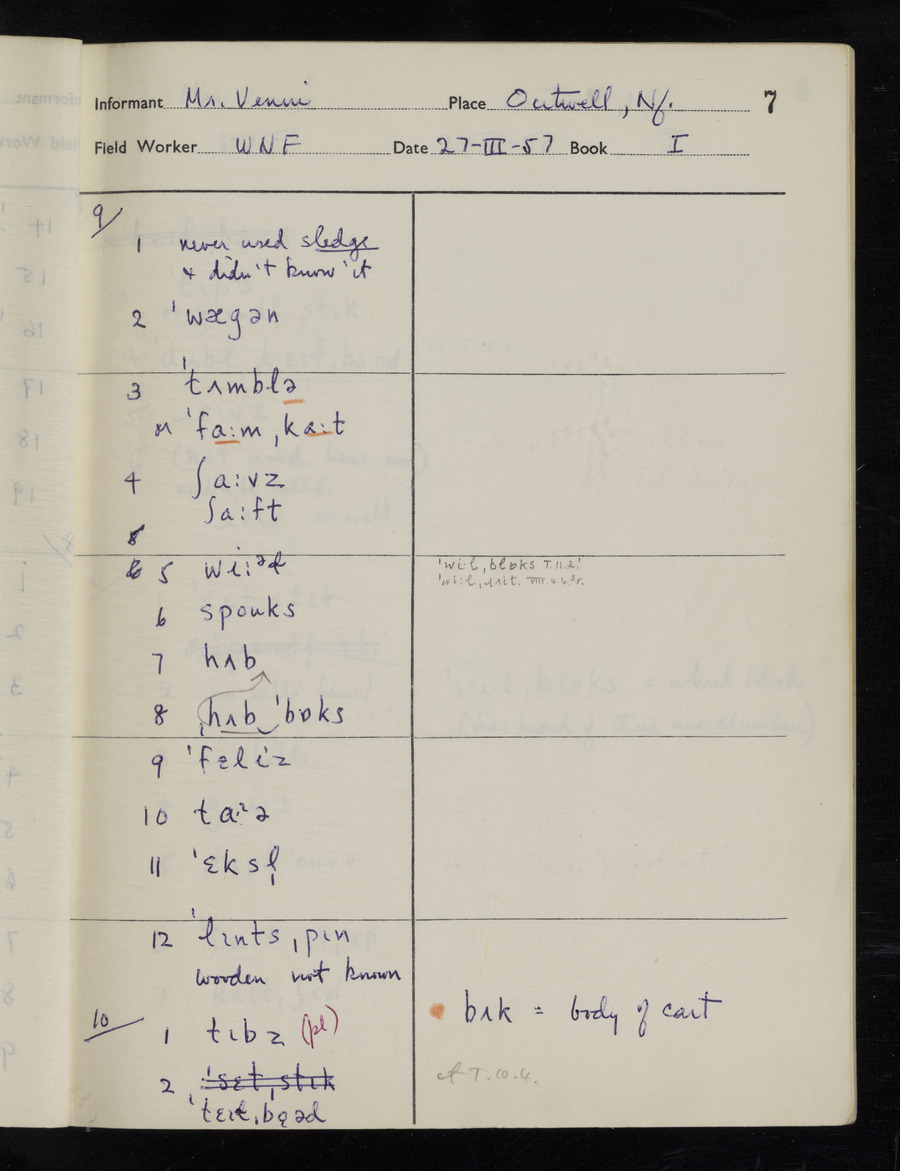 Informant Mr. Venni Place Outwell, Nf. 7
Field Worker WNF Date 27-III-57 Book I
9/
1 never used sledge
& didn't know it
2 ˈwægən
3 ˈtʌmblə
or ˈfaːm ˌkaːt
4 ʃaːvz
ʃaːft
5 wiːəɫ
ˈwiːl ˌblɒks T.11.2.
6 spouks
7 hʌb
8 ˌhʌb ˈbɒks
9 ˈfɛliz
10 taːə
11 ˈɛksl̩
12 ˈlɪnts ˌpɪn
wooden not known
brk = body of cart
10
1 tɪbz (pl)
2 ˈsɛt ˌstɪk
cf T.10.4.